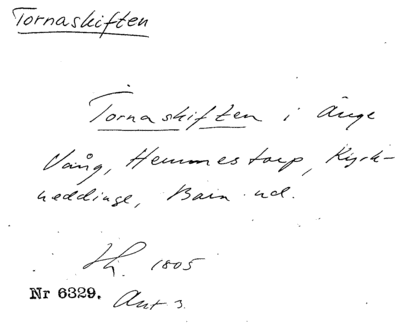 Tornaskiften
Tornaskiften i Änge
Vång, Hemmestorp, Kyrk-
heddinge, Bara hd.
Hh. 1805
Nr 6329. Avt 3.